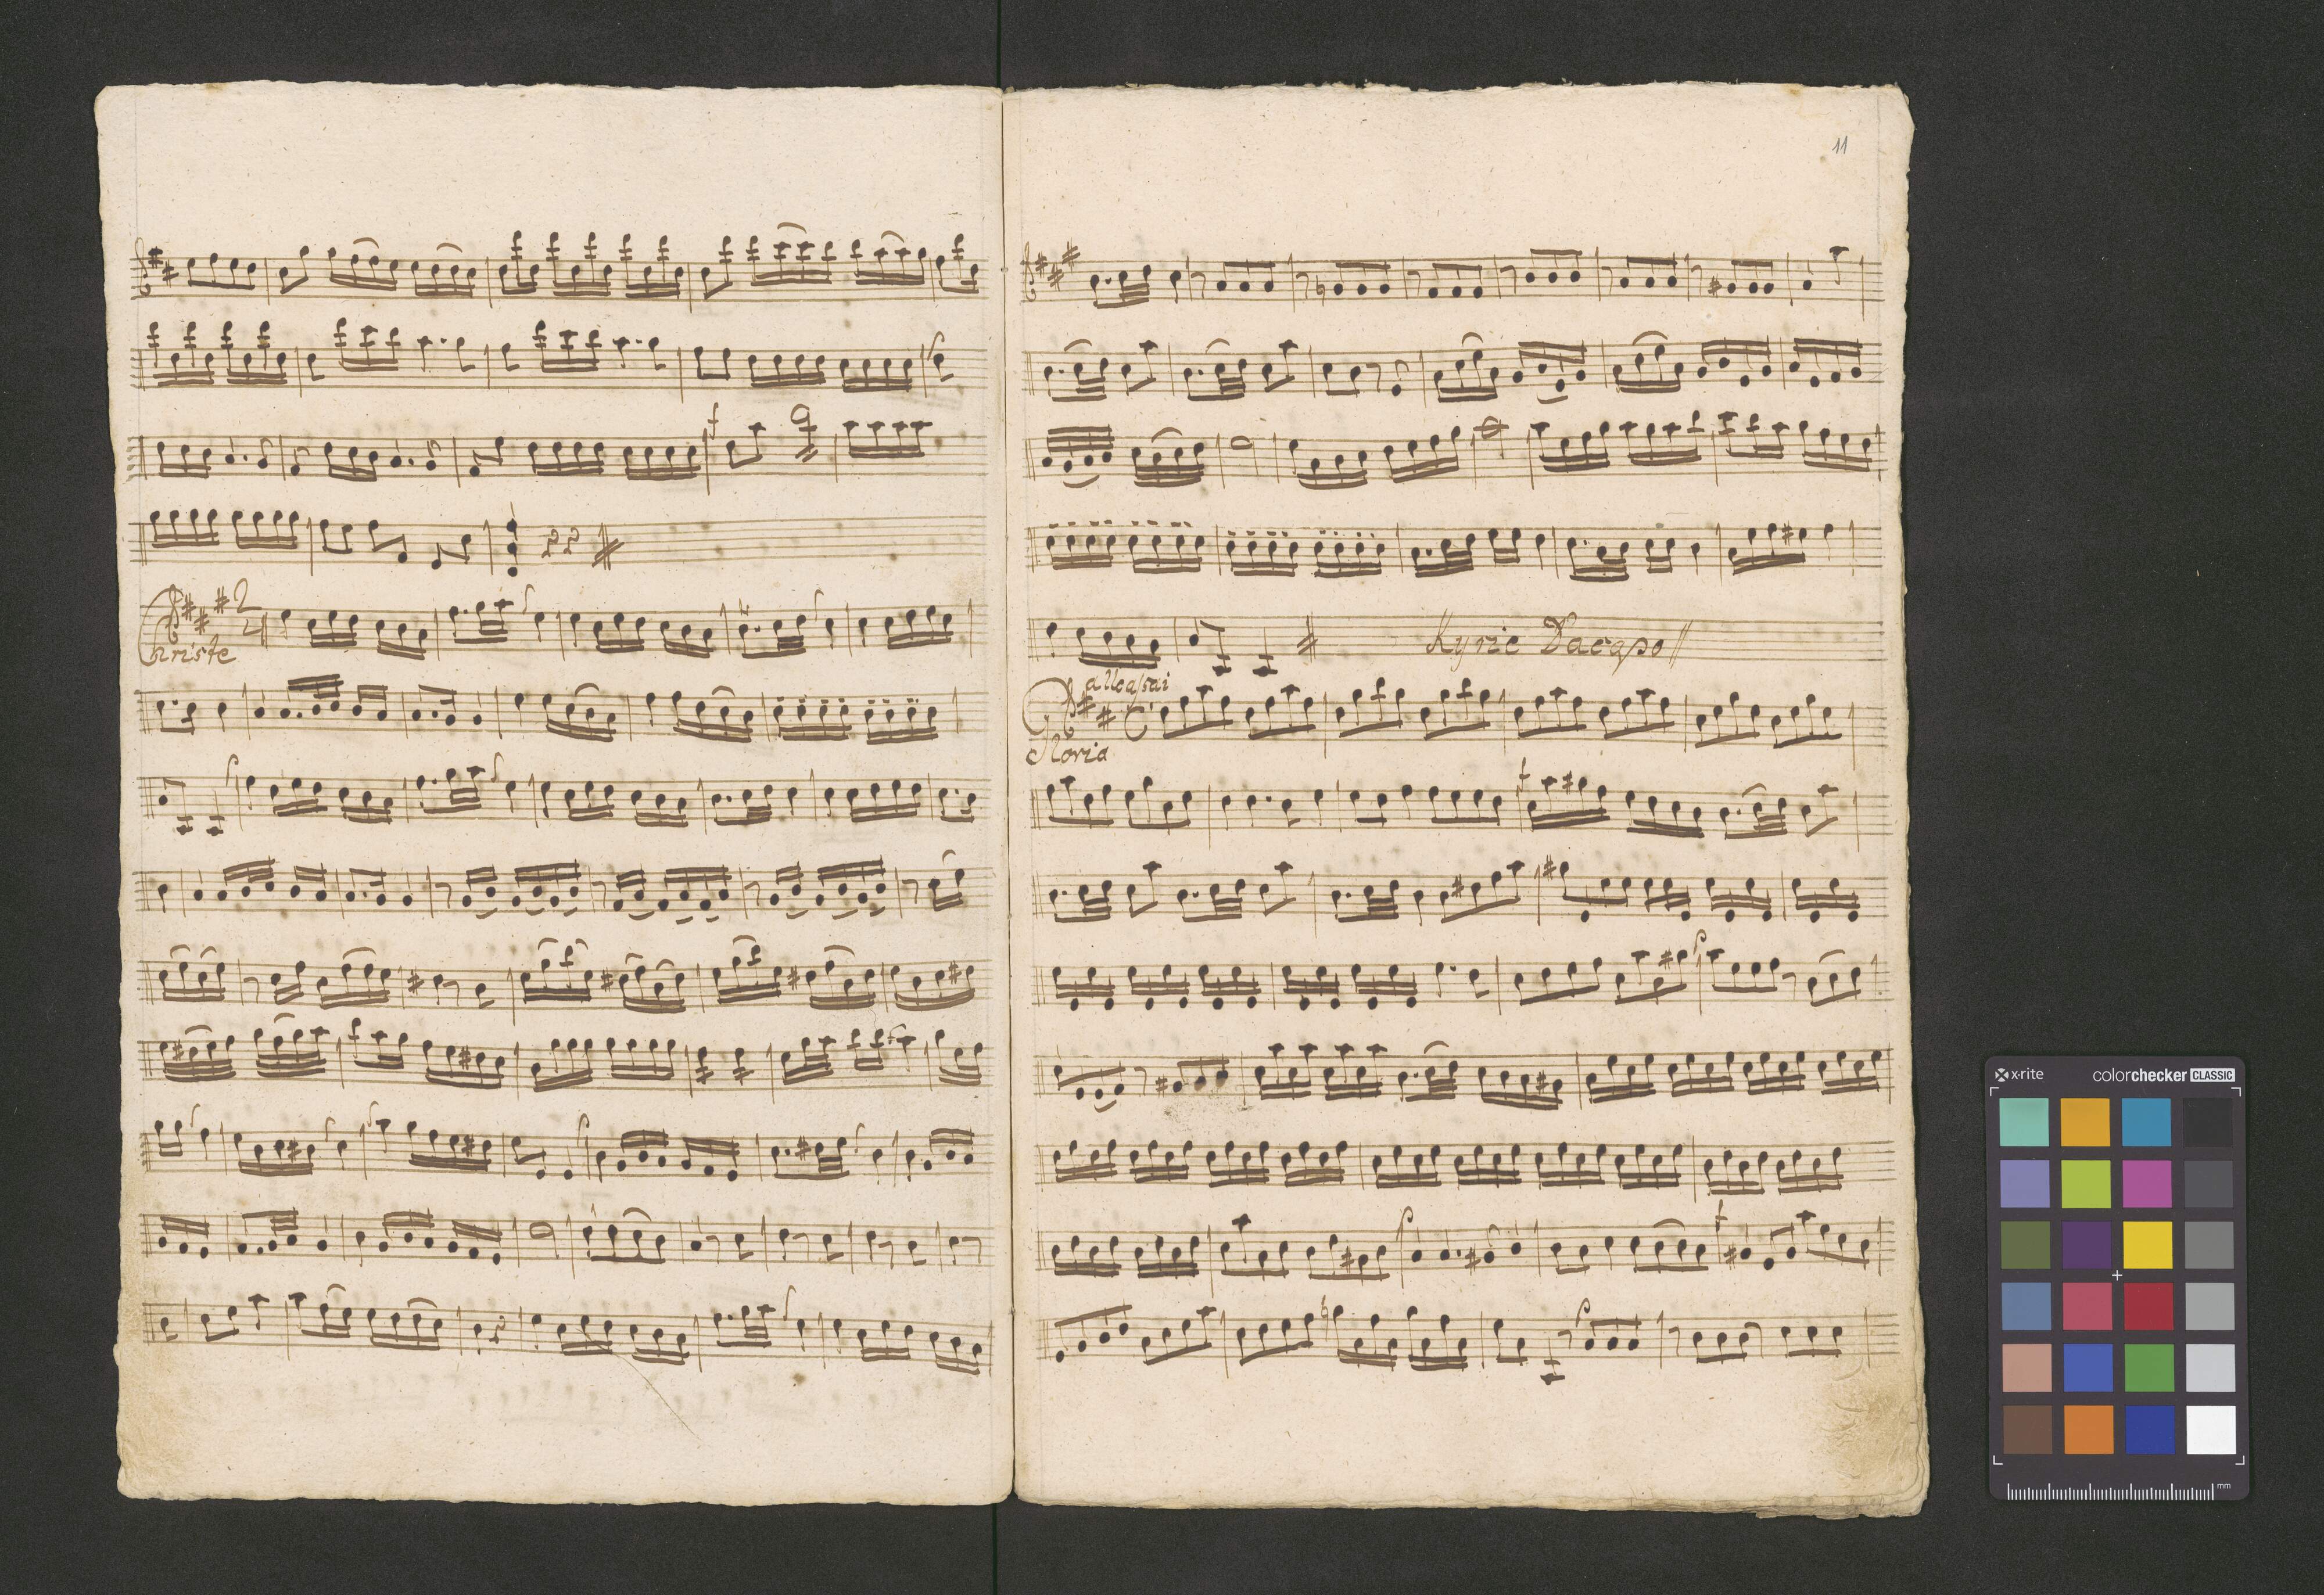 Christe
2
4
11
Kyrie Dacapo
all: assai
Gloria
x-rite
colorchecker CLASSIC
mm